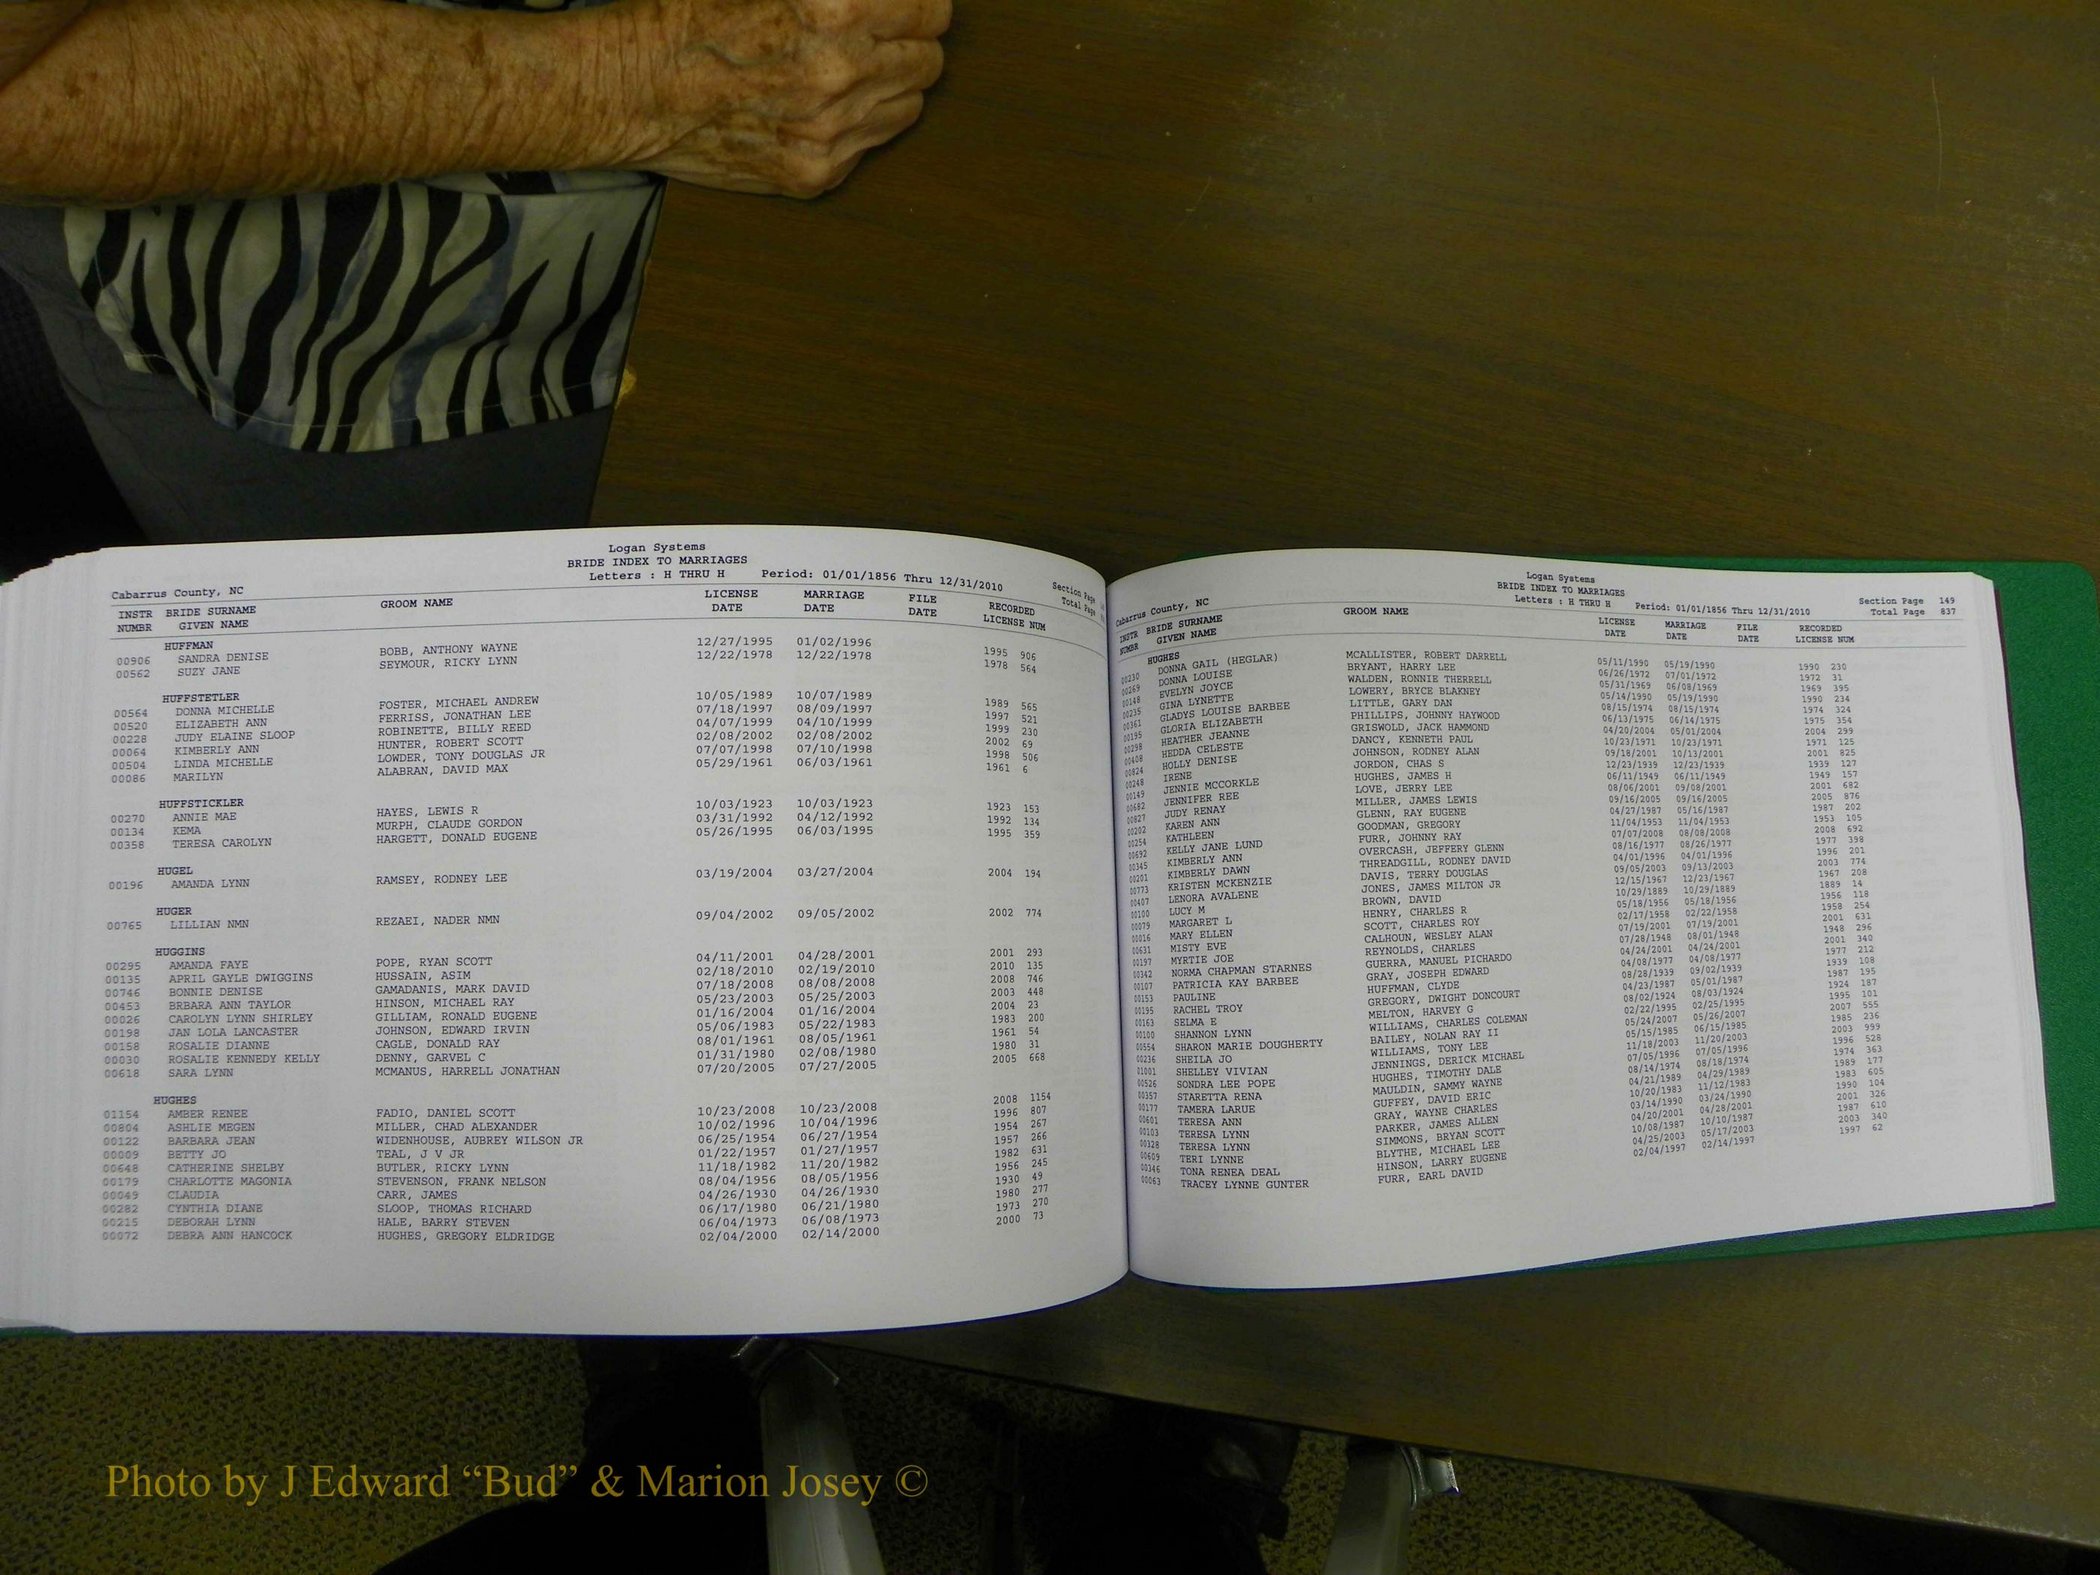 Logan Systems
BRIDE INDEX TO MARRIAGES
Letters : H THRU H Period: 01/01/1856 Thru 12/31/2010
Cabarrus County, NC Section Page
Total Page
INSTR BRIDE SURNAME GROOM NAME LICENSE MARRIAGE FILE RECORDED
NUMBR GIVEN NAME DATE DATE DATE LICENSE NUM
HUFFMAN
00906 SANDRA DENISE BOBB, ANTHONY WAYNE 12/27/1995 01/02/1996 1995 906
00562 SUZY JANE SEYMOUR, RICKY LYNN 12/22/1978 12/22/1978 1978 564
HUFFSTETLER
00564 DONNA MICHELLE FOSTER, MICHAEL ANDREW 10/05/1989 10/07/1989 1989 565
00520 ELIZABETH ANN FERRISS, JONATHAN LEE 07/18/1997 08/09/1997 1997 521
00228 JUDY ELAINE SLOOP ROBINETTE, BILLY REED 04/07/1999 04/10/1999 1999 230
00064 KIMBERLY ANN HUNTER, ROBERT SCOTT 02/08/2002 02/08/2002 2002 69
00504 LINDA MICHELLE LOWDER, TONY DOUGLAS JR 07/07/1998 07/10/1998 1998 506
00086 MARILYN ALABRAN, DAVID MAX 05/29/1961 06/03/1961 1961 6
HUFFSTICKLER
00270 ANNIE MAE HAYES, LEWIS R 10/03/1923 10/03/1923 1923 153
00134 KEMA MURPH, CLAUDE GORDON 03/31/1992 04/12/1992 1992 134
00358 TERESA CAROLYN HARGETT, DONALD EUGENE 05/26/1995 06/03/1995 1995 359
HUGEL
00196 AMANDA LYNN RAMSEY, RODNEY LEE 03/19/2004 03/27/2004 2004 194
HUGER
00765 LILLIAN NMN REZAEI, NADER NMN 09/04/2002 09/05/2002 2002 774
HUGGINS
00295 AMANDA FAYE POPE, RYAN SCOTT 04/11/2001 04/28/2001 2001 293
00135 APRIL GAYLE DWIGGINS HUSSAIN, ASIM 02/18/2010 02/19/2010 2010 135
00746 BONNIE DENISE GAMADANIS, MARK DAVID 07/18/2008 08/08/2008 2008 746
00453 BRBARA ANN TAYLOR HINSON, MICHAEL RAY 05/23/2003 05/25/2003 2003 448
00026 CAROLYN LYNN SHIRLEY GILLIAM, RONALD EUGENE 01/16/2004 01/16/2004 2004 23
00198 JAN LOLA LANCASTER JOHNSON, EDWARD IRVIN 05/06/1983 05/22/1983 1983 200
00158 ROSALIE DIANNE CAGLE, DONALD RAY 08/01/1961 08/05/1961 1961 54
00030 ROSALIE KENNEDY KELLY DENNY, GARVEL C 01/31/1980 02/08/1980 1980 31
00618 SARA LYNN MCMANUS, HARRELL JONATHAN 07/20/2005 07/27/2005 2005 668
HUGHES
01154 AMBER RENEE FADIO, DANIEL SCOTT 10/23/2008 10/23/2008 2008 1154
00804 ASHLIE MEGEN MILLER, CHAD ALEXANDER 10/02/1996 10/04/1996 1996 807
00122 BARBARA JEAN WIDENHOUSE, AUBREY WILSON JR 06/25/1954 06/27/1954 1954 267
00009 BETTY JO TEAL, J V JR 01/22/1957 01/27/1957 1957 266
00648 CATHERINE SHELBY BUTLER, RICKY LYNN 11/18/1982 11/20/1982 1982 631
00179 CHARLOTTE MAGONIA STEVENSON, FRANK NELSON 08/04/1956 08/05/1956 1956 245
00049 CLAUDIA CARR, JAMES 04/26/1930 04/26/1930 1930 49
00282 CYNTHIA DIANE SLOOP, THOMAS RICHARD 06/17/1980 06/21/1980 1980 277
00215 DEBORAH LYNN HALE, BARRY STEVEN 06/04/1973 06/08/1973 1973 270
00072 DEBRA ANN HANCOCK HUGHES, GREGORY ELDRIDGE 02/04/2000 02/14/2000 2000 73
Logan Systems
BRIDE INDEX TO MARRIAGES
Letters : H THRU H Period: 01/01/1856 Thru 12/31/2010
Cabarrus County, NC Section Page 149
Total Page 837
INSTR BRIDE SURNAME GROOM NAME LICENSE MARRIAGE FILE RECORDED
NUMBR GIVEN NAME DATE DATE DATE LICENSE NUM
HUGHES
00230 DONNA GAIL (HEGLAR) MCALLISTER, ROBERT DARRELL 05/11/1990 05/19/1990 1990 230
00269 DONNA LOUISE BRYANT, HARRY LEE 06/26/1972 07/01/1972 1972 31
00148 EVELYN JOYCE WALDEN, RONNIE THERRELL 05/31/1969 06/08/1969 1969 395
00235 GINA LYNETTE LOWERY, BRYCE BLAKNEY 05/14/1990 05/19/1990 1990 234
00361 GLADYS LOUISE BARBEE LITTLE, GARY DAN 08/15/1974 08/15/1974 1974 324
00195 GLORIA ELIZABETH PHILLIPS, JOHNNY HAYWOOD 06/13/1975 06/14/1975 1975 354
00298 HEATHER JEANNE GRISWOLD, JACK HAMMOND 04/20/2004 05/01/2004 2004 299
00408 HEDDA CELESTE DANCY, KENNETH PAUL 10/23/1971 10/23/1971 1971 125
00824 HOLLY DENISE JOHNSON, RODNEY ALAN 09/18/2001 10/13/2001 2001 825
00248 IRENE JORDON, CHAS S 12/23/1939 12/23/1939 1939 127
00149 JENNIE MCCORKLE HUGHES, JAMES H 06/11/1949 06/11/1949 1949 157
00682 JENNIFER REE LOVE, JERRY LEE 08/06/2001 09/08/2001 2001 682
00827 JUDY RENAY MILLER, JAMES LEWIS 09/16/2005 09/16/2005 2005 876
00202 KAREN ANN GLENN, RAY EUGENE 04/27/1987 05/16/1987 1987 202
00254 KATHLEEN GOODMAN, GREGORY 11/04/1953 11/04/1953 1953 105
00692 KELLY JANE LUND FURR, JOHNNY RAY 07/07/2008 08/08/2008 2008 692
00345 KIMBERLY ANN OVERCASH, JEFFERY GLENN 08/16/1977 08/26/1977 1977 398
00201 KIMBERLY DAWN THREADGILL, RODNEY DAVID 04/01/1996 04/01/1996 1996 201
00773 KRISTEN MCKENZIE DAVIS, TERRY DOUGLAS 09/05/2003 09/13/2003 2003 774
00407 LENORA AVALENE JONES, JAMES MILTON JR 12/15/1967 12/23/1967 1967 208
00100 LUCY M BROWN, DAVID 10/29/1889 10/29/1889 1889 14
00079 MARGARET L HENRY, CHARLES R 05/18/1956 05/18/1956 1956 118
00016 MARY ELLEN SCOTT, CHARLES ROY 02/17/1958 02/22/1958 1958 254
00631 MISTY EVE CALHOUN, WESLEY ALAN 07/19/2001 07/19/2001 2001 631
00197 MYRTIE JOE REYNOLDS, CHARLES 07/28/1948 08/01/1948 1948 296
00342 NORMA CHAPMAN STARNES GUERRA, MANUEL PICHARDO 04/24/2001 04/24/2001 2001 340
00107 PATRICIA KAY BARBEE GRAY, JOSEPH EDWARD 04/08/1977 04/08/1977 1977 212
00153 PAULINE HUFFMAN, CLYDE 08/28/1939 09/02/1939 1939 108
00195 RACHEL TROY GREGORY, DWIGHT DONCOURT 04/23/1987 05/01/1987 1987 195
00163 SELMA E MELTON, HARVEY G 08/02/1924 08/03/1924 1924 187
00100 SHANNON LYNN WILLIAMS, CHARLES COLEMAN 02/22/1995 02/25/1995 1995 101
00554 SHARON MARIE DOUGHERTY BAILEY, NOLAN RAY II 05/24/2007 05/26/2007 2007 555
00236 SHEILA JO WILLIAMS, TONY LEE 05/15/1985 06/15/1985 1985 236
01001 SHELLEY VIVIAN JENNINGS, DERICK MICHAEL 11/18/2003 11/20/2003 2003 999
00526 SONDRA LEE POPE HUGHES, TIMOTHY DALE 07/05/1996 07/05/1996 1996 528
00357 STARETTA RENA MAULDIN, SAMMY WAYNE 08/14/1974 08/18/1974 1974 363
00177 TAMERA LARUE GUFFEY, DAVID ERIC 04/21/1989 04/29/1989 1989 177
00601 TERESA ANN GRAY, WAYNE CHARLES 10/20/1983 11/12/1983 1983 605
00103 TERESA LYNN PARKER, JAMES ALLEN 03/14/1990 03/24/1990 1990 104
00328 TERESA LYNN SIMMONS, BRYAN SCOTT 04/20/2001 04/28/2001 2001 326
00609 TERI LYNNE BLYTHE, MICHAEL LEE 10/08/1987 10/10/1987 1987 610
00346 TONA RENEA DEAL HINSON, LARRY EUGENE 04/25/2003 05/17/2003 2003 340
00063 TRACEY LYNNE GUNTER FURR, EARL DAVID 02/04/1997 02/14/1997 1997 62
Photo by J Edward “Bud” & Marion Josey ©